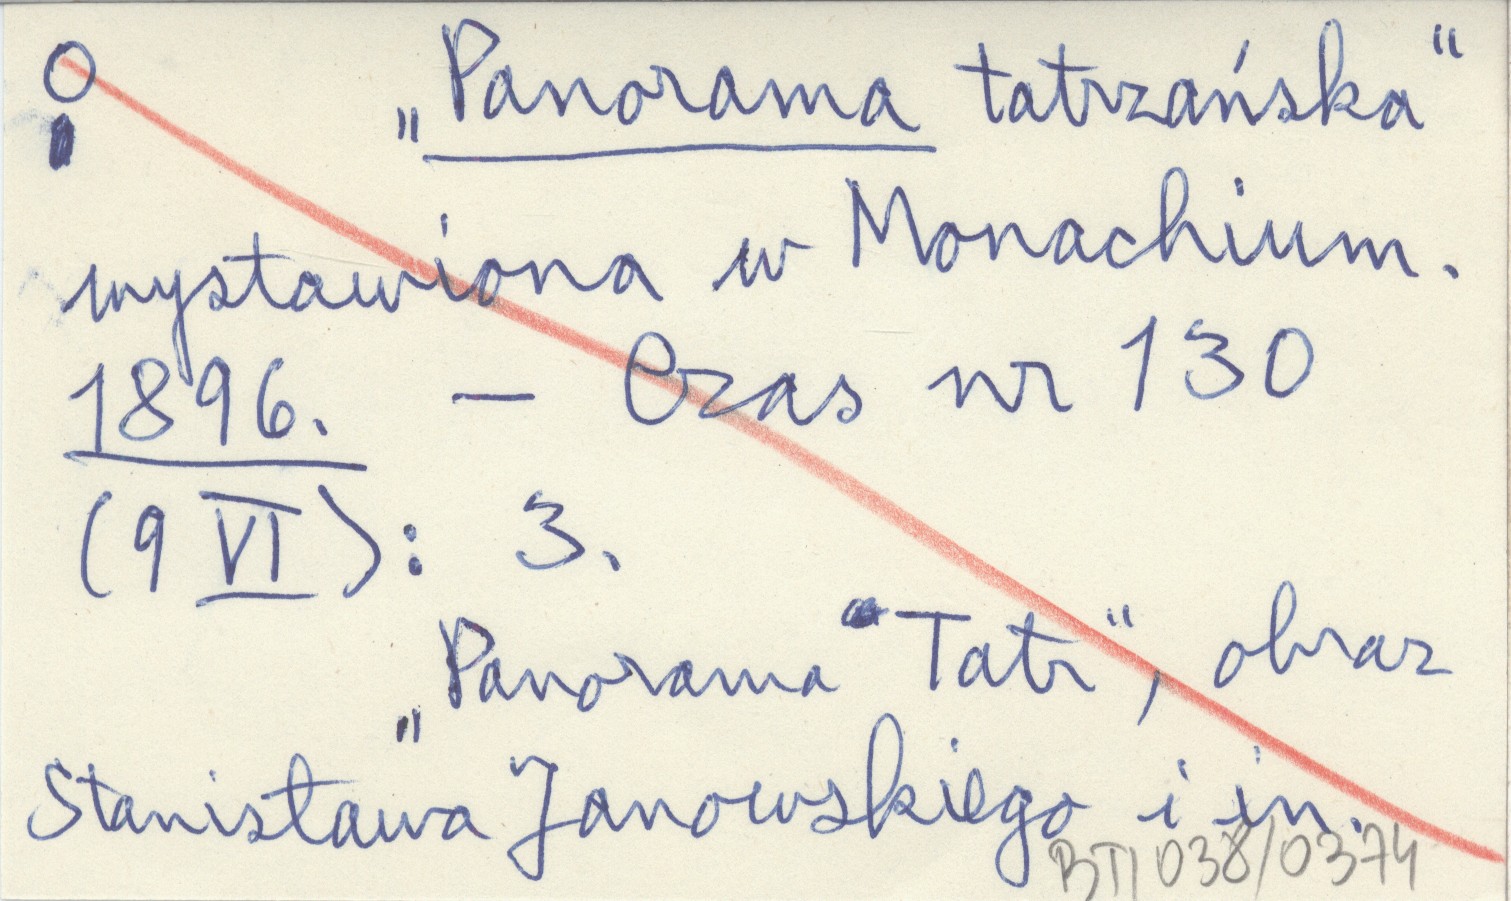 „Panorama tatrzańska“
wystawiona w Monachium.
1896. — Czas nr 130
(9 VI): 3.
„Panorama “Tatr“, obraz
Stanisława Janowskiego i in.
BTI 038/0374